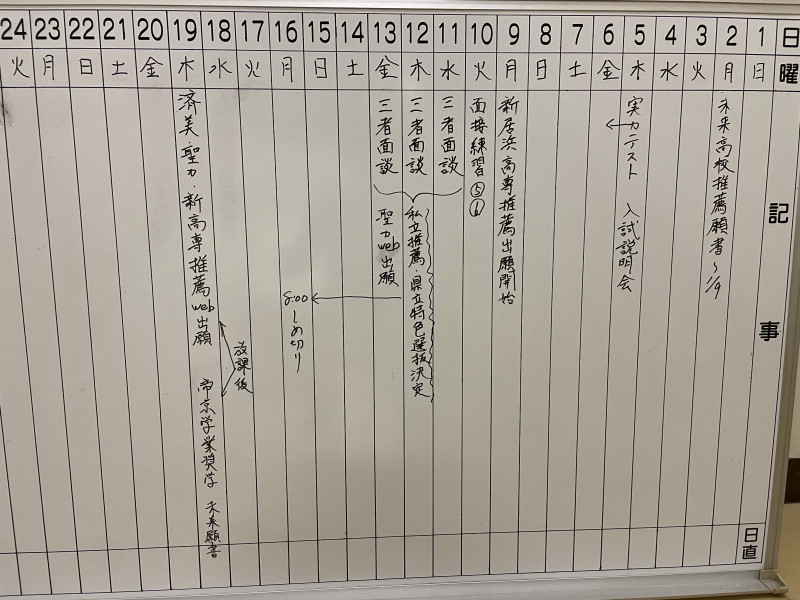 日 1 2 3 4 5 6 7 8 9 10 11 12 13 14 15 16 17 18 19 20 21 22 23 24
曜 日 月 火 水 木 金 土 日 月 火 水 木 金 土 日 月 火 水 木 金 土 日 月 火
記事
未来高校推薦願書～1/9
実力テスト 入試説明会
新居浜高専推薦出願開始
面接練習⑤⑥
三者面談
三者面談
三者面談
私立推薦・県立特色選抜決定
聖カweb出願
8:00しめ切り
放課後
済美・聖カ・新高専推薦web出願
帝京学業奨学 未来願書
日直